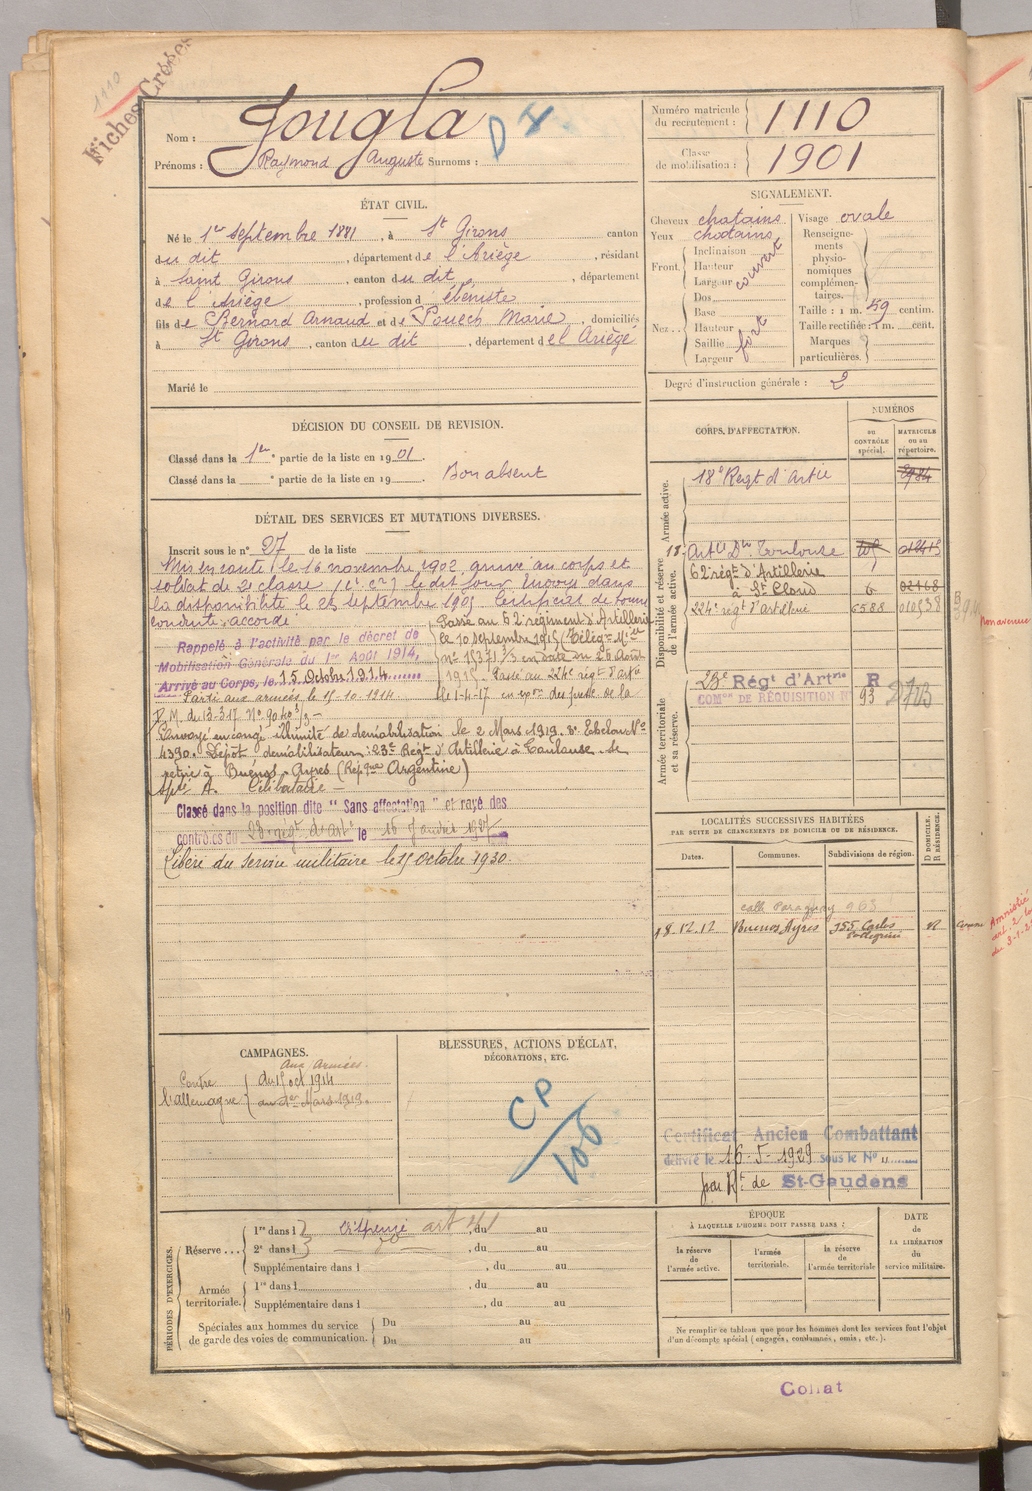 1110
Fiches Croisées
Nom : Jougla
Prénoms : Raymond Auguste Surnoms :
Numéro matricule du recrutement : 1110
Classe de mobilisation : 1901
ÉTAT CIVIL.
Né le 1er septembre 1881, à St Girons canton
du dit, département de l'Ariège, résidant
à Saint Girons, canton du dit, département
de l'Ariège, profession d ébéniste
fils de Bernard Arnaud et de Pouech Marie, domiciliés
à St Girons, canton du dit, département de l'Ariège
Marié le
SIGNALEMENT.
Cheveux chatains
Yeux chatains
Front. Inclinaison
Hauteur
Largeur
couvert
Nez. Dos
Base
Hauteur
Saillie
Largeur
fort
Visage ovale
Renseignements physionomiques complémentaires.
Taille : 1 m. 59 centim.
Taille rectifiée : 1 m. cent.
Marques particulières.
Degré d'instruction générale : 2
DÉCISION DU CONSEIL DE REVISION.
Classé dans la 1ere partie de la liste en 1901.
Classé dans la e partie de la liste en 19 . Bon absent
DÉTAIL DES SERVICES ET MUTATIONS DIVERSES.
Inscrit sous le n° 27 de la liste
Mis en route le 16 novembre 1902 arrivé au corps et
soldat de 2e classe le dit jour. Envoyé dans
la disponibilité le septembre 1905 Certificat de bonne
conduite accordé
Rappelé à l'activité par le décret de
Mobilisation Générale du 1er Août 1914,
Arrivé au Corps, le 15 Octobre 1914
Parti aux armées le 15-10-1914
Passé au 62e régiment d'Artillerie
le 10 septembre 1915
n° 15371 3/3 en date du 26 Août
1915. Passé au 224e régt d'Artie
le 1-4-17
D.M. du 13-3-17 N° 9040 3/3 -
Envoyé en congé illimité de démobilisation le 2 Mars 1919. 8e Echelon N°
4390. Dépôt démobilisateur : 23e Régt d'Artillerie à Toulouse. Se
retire à Buenos-Ayres (Répque Argentine)
Célibataire -
Classé dans la position dite "Sans affectation" et rayé des
contrôles du 23e régt d'Artie le 15 Janvier 1927
Libéré du service militaire le 15 Octobre 1930.
CORPS D'AFFECTATION.
NUMÉROS
au CONTRÔLE spécial.
MATRICULE ou au répertoire.
Armée active.
18e Regt d'Artie
Disponibilité et réserve de l'armée active.
18e Artie Don Toulouse
62e régt d'Artillerie
à St Cloud 6 02168
224e régt d'Artillerie 6588 010538
Armée territoriale et sa réserve.
23e Régt d'Artrie R
COMon DE RÉQUISITION N° 93
LOCALITÉS SUCCESSIVES HABITÉES
PAR SUITE DE CHANGEMENTS DE DOMICILE OU DE RÉSIDENCE.
Dates.
Communes.
Subdivisions de région.
D DOMICILE.
R RÉSIDENCE.
calle Paraguay 963
18.12.12 Buenos Ayres 355 Carlos Pellegrini R
CAMPAGNES.
Aux Armées
Contre l'allemagne
du 15 oct 1914
au 1er Mars 1919.
BLESSURES, ACTIONS D'ÉCLAT,
DÉCORATIONS, ETC.
CP/106
Certificat Ancien Combattant
délivré le 16-5-1929 sous le N° "
par Rt de St-Gaudens
PÉRIODES D'EXERCICES.
Réserve ... 1re dans l dispensé art 41, du au
2e dans l , du au
Supplémentaire dans l , du au
Armée territoriale. 1re dans l , du au
Supplémentaire dans l , du au
Spéciales aux hommes du service
de garde des voies de communication.
Du au
Du au
ÉPOQUE
À LAQUELLE L'HOMME DOIT PASSER DANS :
la réserve de l'armée active.
l'armée territoriale.
la réserve de l'armée territoriale
DATE de LA LIBÉRATION du service militaire.
Ne remplir ce tableau que pour les hommes dont les services font l'objet
d'un décompte spécial (engagés, condamnés, omis, etc.).
Collat
Amnistié
art. 2